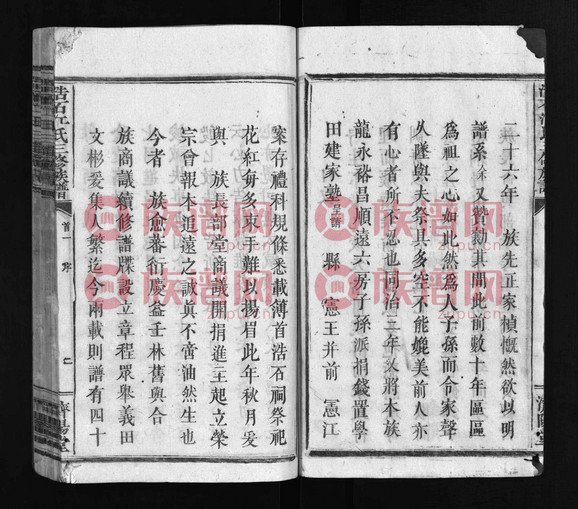 二十六年　族先正家楨慨然欲以明
譜系余又贊勷其間此前數十年區區
為祖之心如此然為人子孫而令家聲
久墜與夫祭具多空不能媲美前人亦
有心者所不忍也同治三年又將本族
龍永裕昌順遠六房子孫派捐錢置學
田建家塾縣憲王并前憲江
案存禮科規條悉載薄首浩石祠祭祀
花紅何多束手難以揚眉此年秋月爰
與　族長部堂商議開捐進主起立榮
宗會報本追遠之誠真不啻油然生也
今者　族愈蕃衍慶益壬林舊與合
族商議續修譜牒設立章程眾舉義田
文彬爰集人繁迄今兩載則譜有四十
浩石江氏三修族譜
首一　序
二
濟陽堂
族譜网
zupu.cn